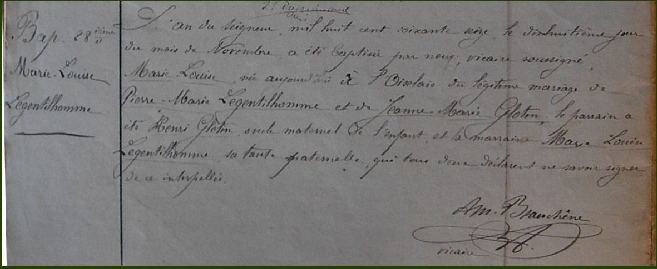 Bap. 28ième
Marie-Louise
Legentilhomme
L'an du seigneur mil huit cent soixante seize le dixhuitième jour
du mois de Novembre a été baptisée par nous, vicaire soussigné,
Marie Louise née aujourd'hui à l' du légitime mariage de
Pierre-Marie Legentilhomme et de Jeanne Marie Gloton, le parrain a
été Henri Gloton oncle maternel de l'enfant, et la marraine Marie Louise
Legentilhomme sa tante paternelle, qui tous deux déclarent ne savoir signer
de ce interpellés.
Am. Beauchêne
vicaire